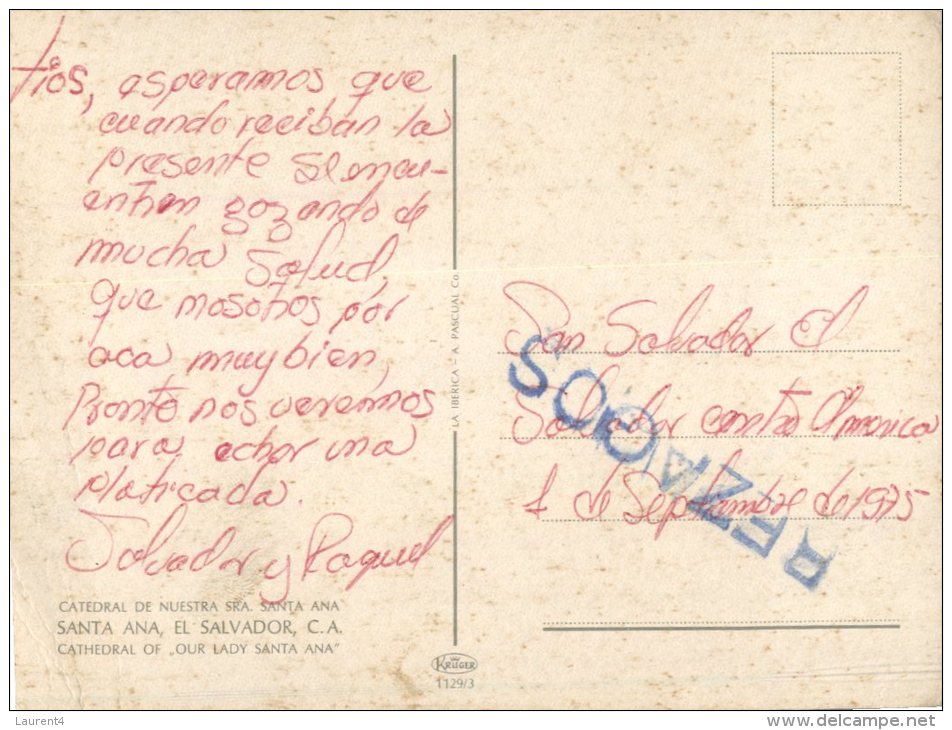 tíos, esperamos que
cuando reciban la
presente se encu-
entren gozando de
mucha salud,
que nosotros por
aca muy bien,
Pronto nos veremos
para echar una
platicada.
Salvador y Raquel
CATEDRAL DE NUESTRA SRA. SANTA ANA
SANTA ANA, EL SALVADOR, C.A.
CATHEDRAL OF „OUR LADY SANTA ANA”
LA IBERICA - A. PASCUAL Co.
KRÜGER
1129/3
San Salvador El
Salvador centro America
1 de Septiembre de 1975
REZAGOS
Laurent4
www.delcampe.net